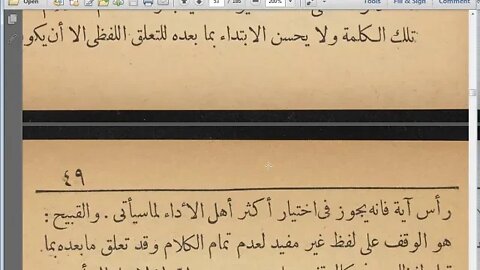 Open
53 / 186
200%
Tools
Fill & Sign
Comment
تلك الكلمة ولا يحسن الابتداء بما بعده للتعلق اللفظى الا أن يكون
٤٩
رأس آية فانه يجوز فى اختيار أكثر أهل الأداء لماسيأتى . والقبيح :
هو الوقف على لفظ غير مفيد لعدم تمام الكلام وقد تعلق ما بعده بما